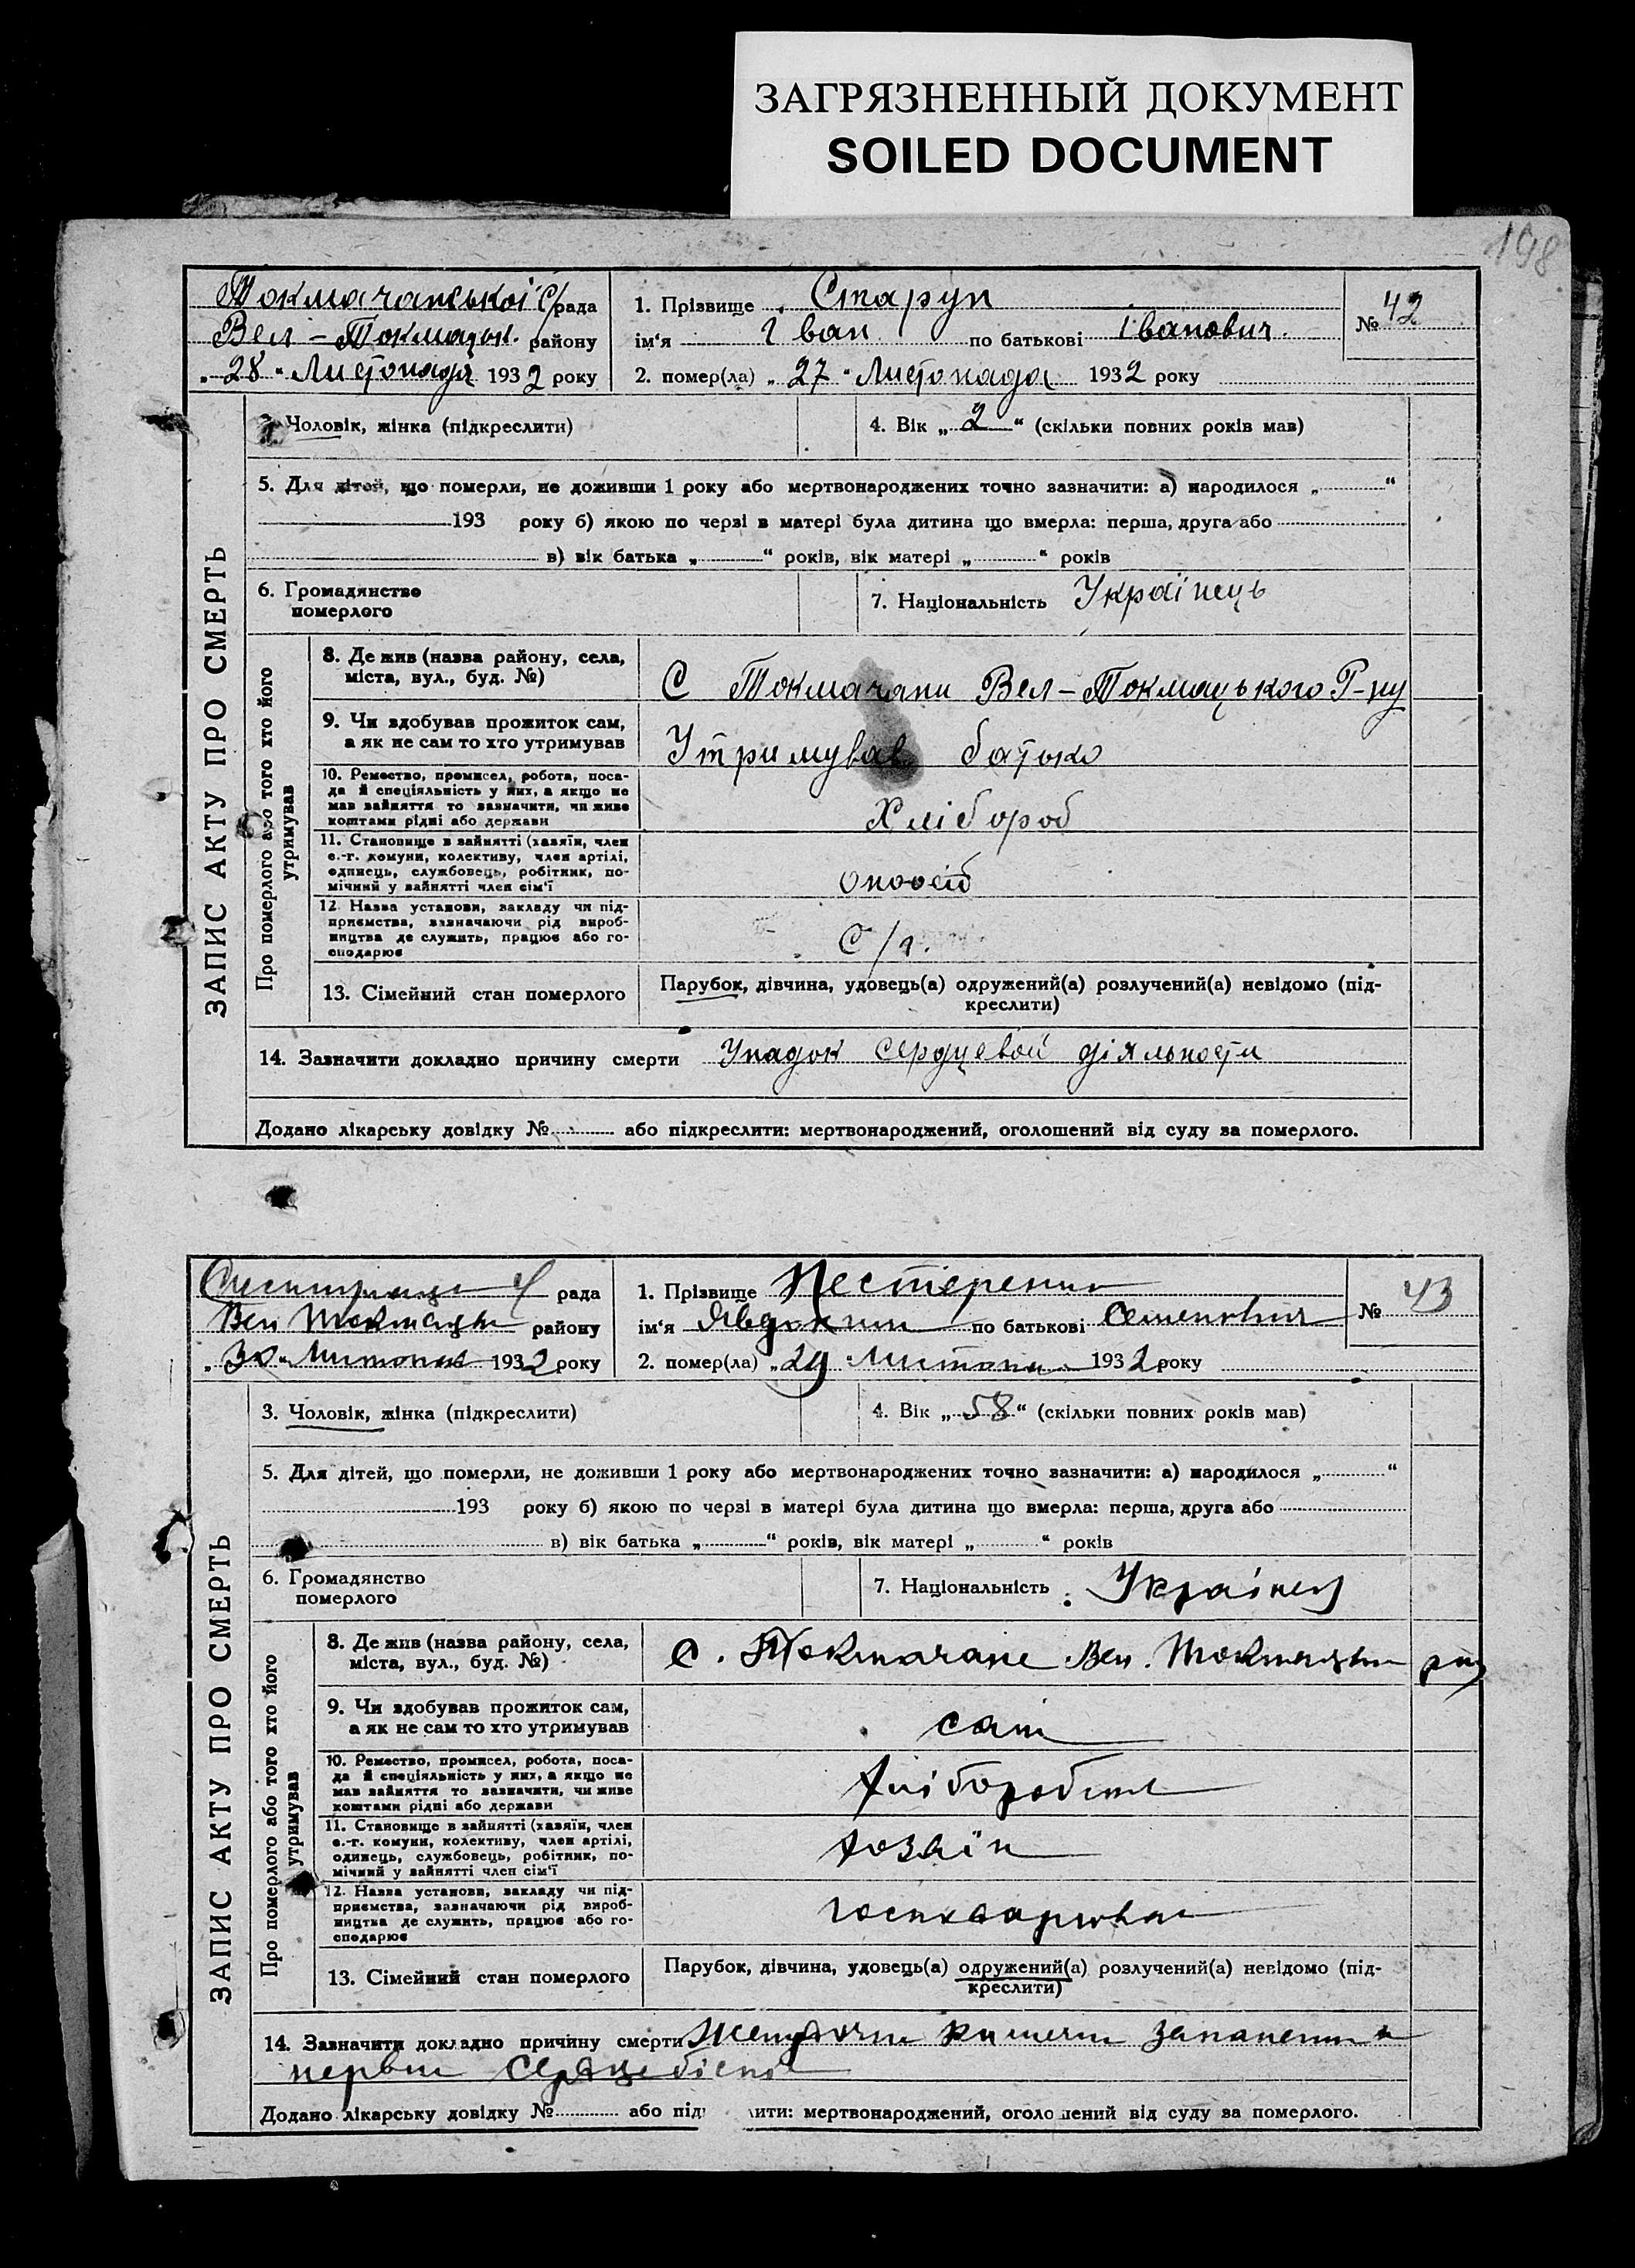 ЗАГРЯЗНЕННЫЙ ДОКУМЕНТ
SOILED DOCUMENT
198
Токмачанської С/рада
Вел-Токмацьк. району
„28“ Листопада 1932 року
1. Прізвище Старун
ім'я Іван по батькові Іванович.
2. помер(ла) „27“ Листопада 1932 року
№ 42
ЗАПИС АКТУ ПРО СМЕРТЬ
3. Чоловік, жінка (підкреслити)
4. Вік „2“ (скільки повних років мав)
5. Для дітей, що померли, не доживши 1 року або мертвонароджених точно зазначити: а) народилося „ “
193 року б) якою по черзі в матері була дитина що вмерла: перша, друга або
в) вік батька „ “ років, вік матері „ “ років
6. Громадянство
померлого
7. Національність Українець
Про померлого або того хто його
утримував
8. Де жив (назва району, села,
міста, вул., буд. №)
С Токмачани Вел-Токмацького Р-ну
9. Чи здобував прожиток сам,
а як не сам то хто утримував
Утримував батько
10. Ремество, промисел, робота, поса-
да й спеціяльність у них, а якщо не
мав зайняття то зазначити, чи живе
коштами рідні або держави
Хлібороб
11. Становище в зайнятті (хазяїн, член
с.-г. комуни, колективу, член артілі,
одинець, службовець, робітник, по-
мічний у зайнятті член сім'ї
12. Назва установи, закладу чи під-
приємства, зазначаючи рід вироб-
ництва де служить, працює або го-
сподарює
С/г.
13. Сімейний стан померлого
Парубок, дівчина, удовець(а) одружений(а) розлучений(а) невідомо (під-
креслити)
14. Зазначити докладно причину смерти Упадок сердцевой діяльности
Додано лікарську довідку № або підкреслити: мертвонароджений, оголошений від суду за померлого.
рада
Вел Токмацьк району
„30“ Листопад 1932 року
1. Прізвище Нестеренко
ім'я Явдоким по батькові Семенович
2. помер(ла) „29“ Листопад 1932 року
№ 43
ЗАПИС АКТУ ПРО СМЕРТЬ
3. Чоловік, жінка (підкреслити)
4. Вік „58“ (скільки повних років мав)
5. Для дітей, що померли, не доживши 1 року або мертвонароджених точно зазначити: а) народилося „ “
193 року б) якою по черзі в матері була дитина що вмерла: перша, друга або
в) вік батька „ “ років, вік матері „ “ років
6. Громадянство
померлого
7. Національність Українец
Про померлого або того хто його
утримував
8. Де жив (назва району, села,
міста, вул., буд. №)
с. Токмачане Вел. Токмацьк рну
9. Чи здобував прожиток сам,
а як не сам то хто утримував
сам
10. Ремество, промисел, робота, поса-
да й спеціяльність у них, а якщо не
мав зайняття то зазначити, чи живе
коштами рідні або держави
11. Становище в зайнятті (хазяїн, член
с.-г. комуни, колективу, член артілі,
одинець, службовець, робітник, по-
мічний у зайнятті член сім'ї
хозяїн
12. Назва установи, закладу чи під-
приємства, зазначаючи рід вироб-
ництва де служить, працює або го-
сподарює
13. Сімейний стан померлого
Парубок, дівчина, удовець(а) одружений(а) розлучений(а) невідомо (під-
креслити)
14. Зазначити докладно причину смерти
Додано лікарську довідку № або під ити: мертвонароджений, оголошений від суду за померлого.